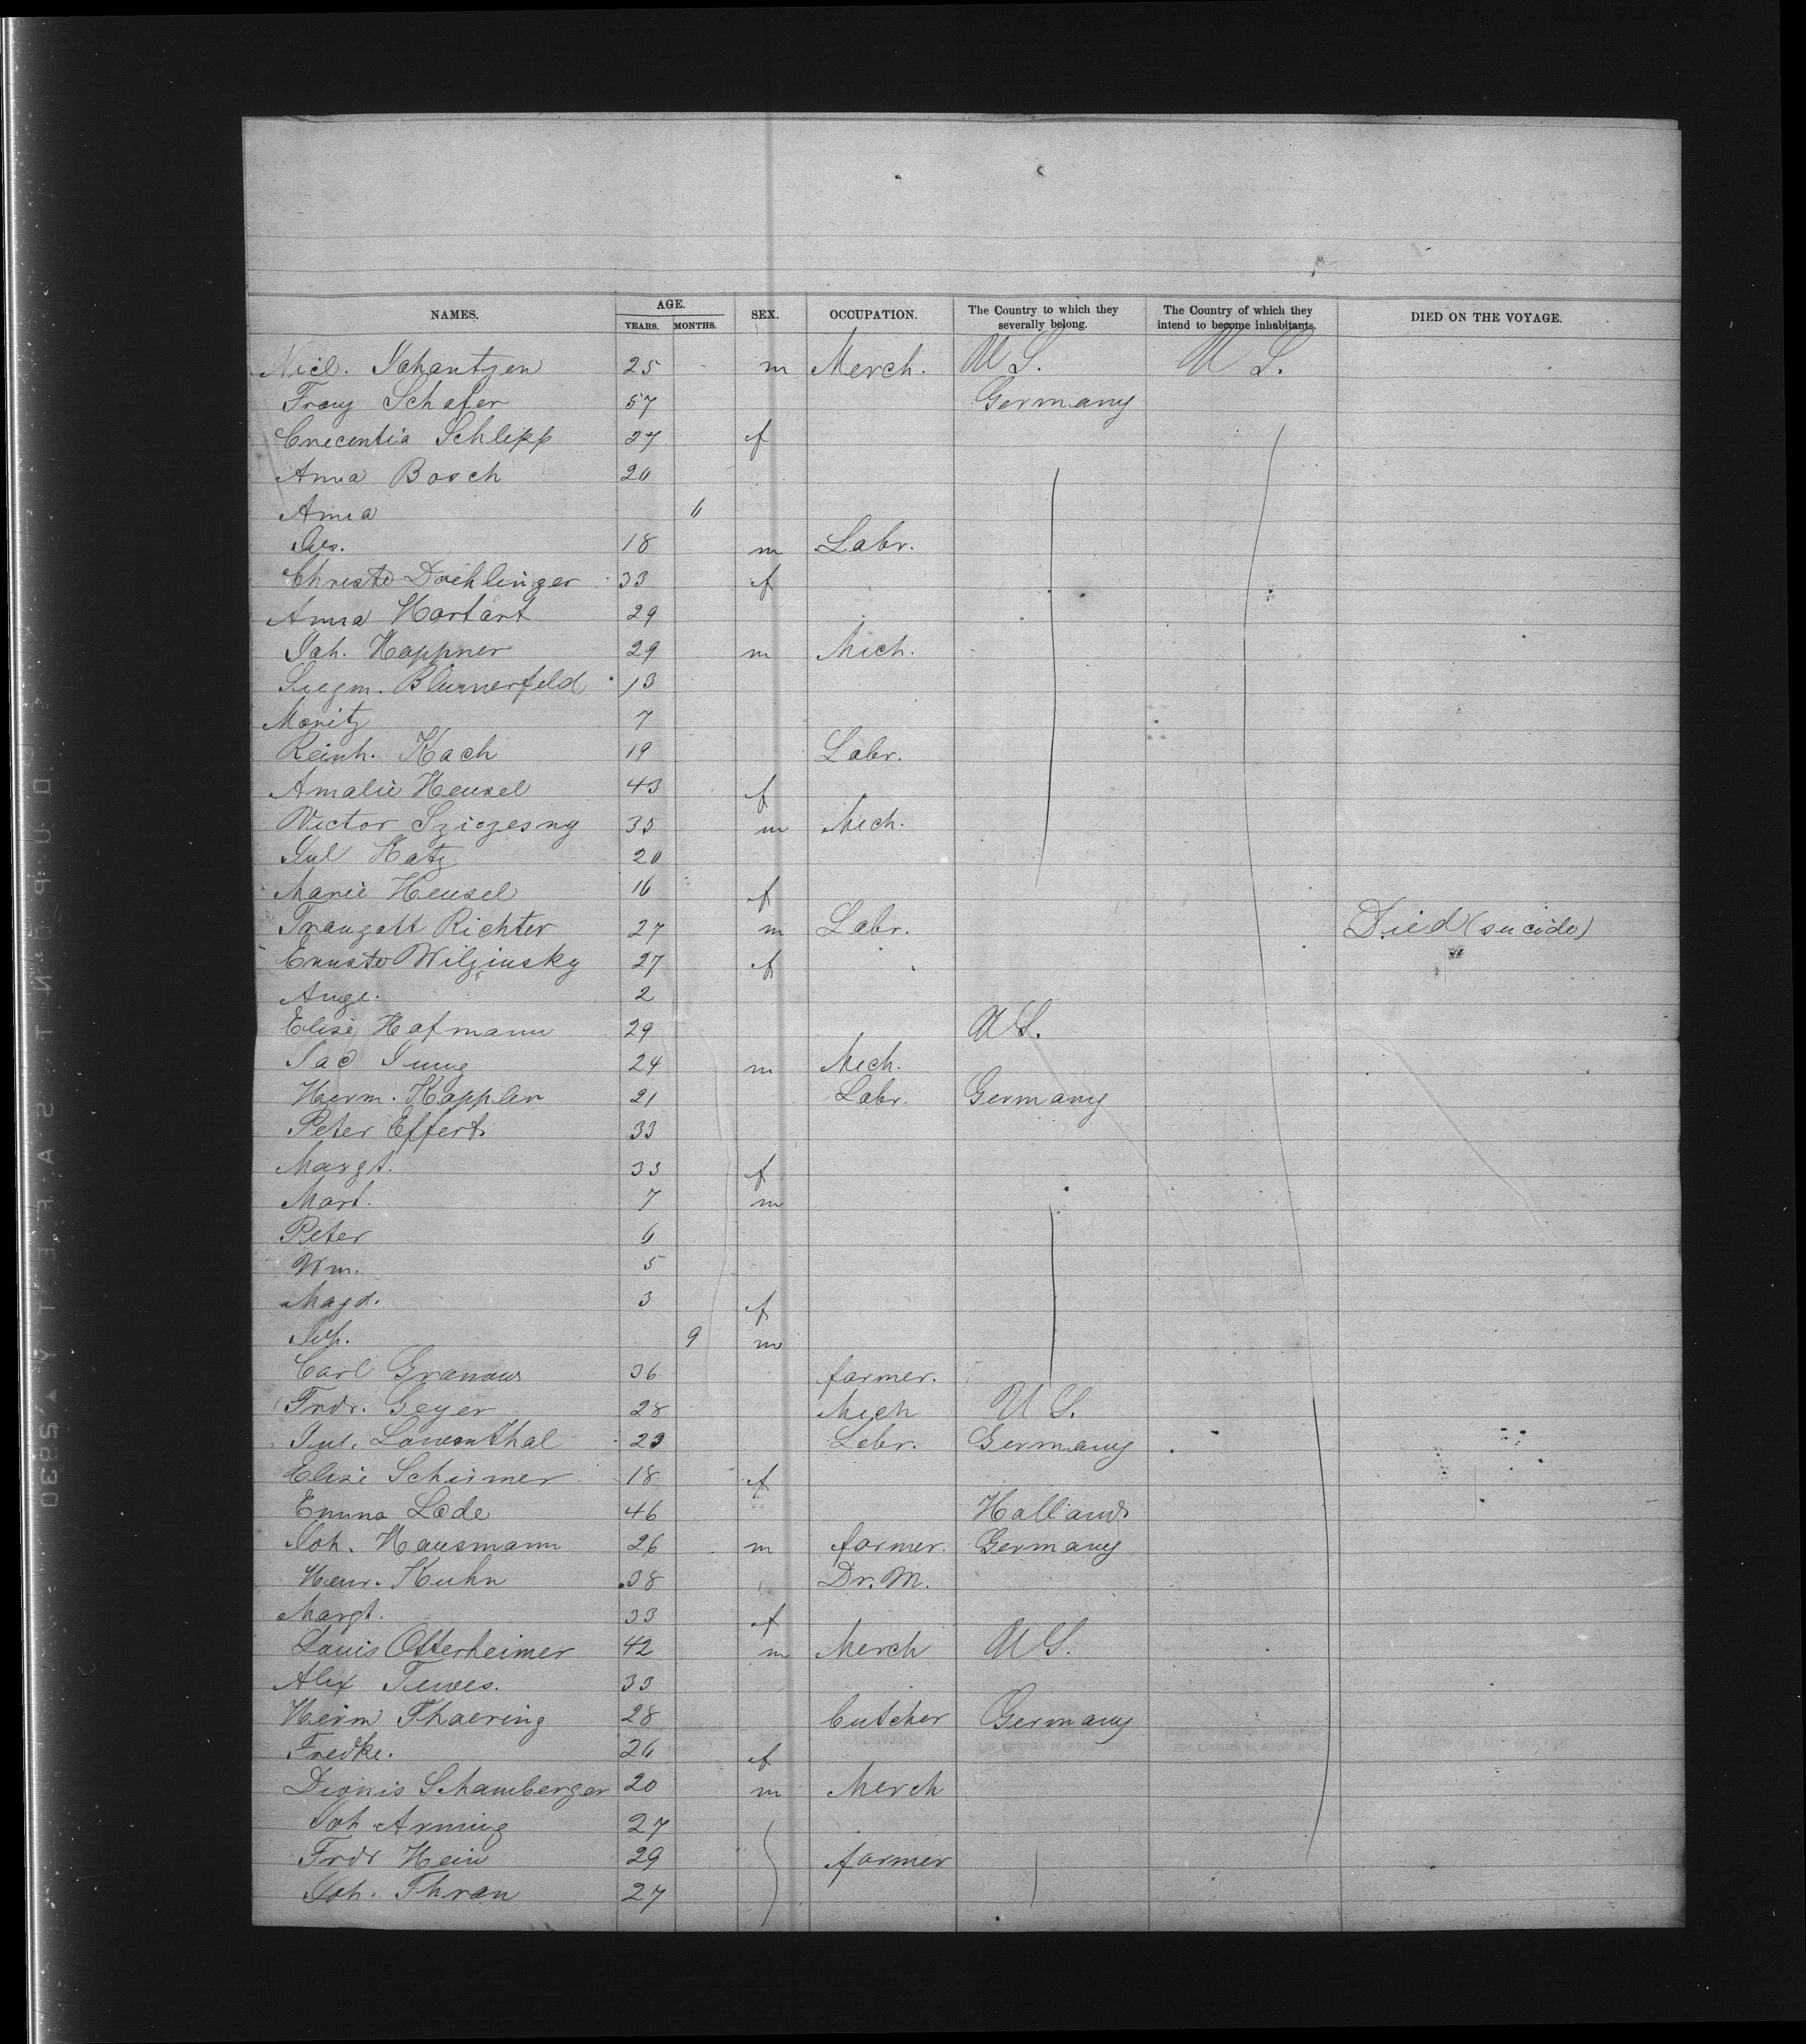 NAMES. AGE. YEARS. MONTHS. SEX. OCCUPATION. The Country to which they severally belong. The Country of which they intend to become inhabitants. DIED ON THE VOYAGE.
Nicl. Schantzen 25 m Merch. U S. U S.
Franz Schafer 57 Germany
Crecentia Schlipp 27 f
Anna Bosch 20
Anna 6
Jos. 18 m Labr.
Christe Daehlinger 33 f
Anna Hartart 29
Joh. Happner 29 m Mich.
Siegm. Blumerfeld 13
Moritz 7
Reinh. Kach 19 Labr.
Amalie Hensel 43 f
Victor Sziczesny 35 m Mich.
Jul Katz 20
Marie Hensel 16 f
Traugott Richter 27 m Labr. Died (suicide)
Ernste Wilzinsky 27 f
Auge. 2
Elise Hafmann 29 U S.
Jac Jung 24 m Mich.
Herm. Kappler 21 Labr. Germany
Peter Effert 33
Margt. 33 f
Mart. 7 m
Peter 6
Wm. 5
Magd. 3 f
Jos. 9 m
Carl Granow 36 farmer.
Frdr. Geyer 28 Mich U S.
Jul. Lowenthal 23 Labr. Germany
Elise Schirmer 18 f
Emma Lode 46 Holland
Joh. Hausmann 26 m farmer. Germany
Henr. Kuhn 38 Dr. M.
Margt. 33 f
Louis Otterheimer 42 m Merch U S.
Alex Tewes. 33
Herm Thaering 28 butcher Germany
Fredke. 26 f
Dionis Schamberger 20 m Merch
Joh Arming 27
Frdr Hein 29 farmer
Joh. Thran 27